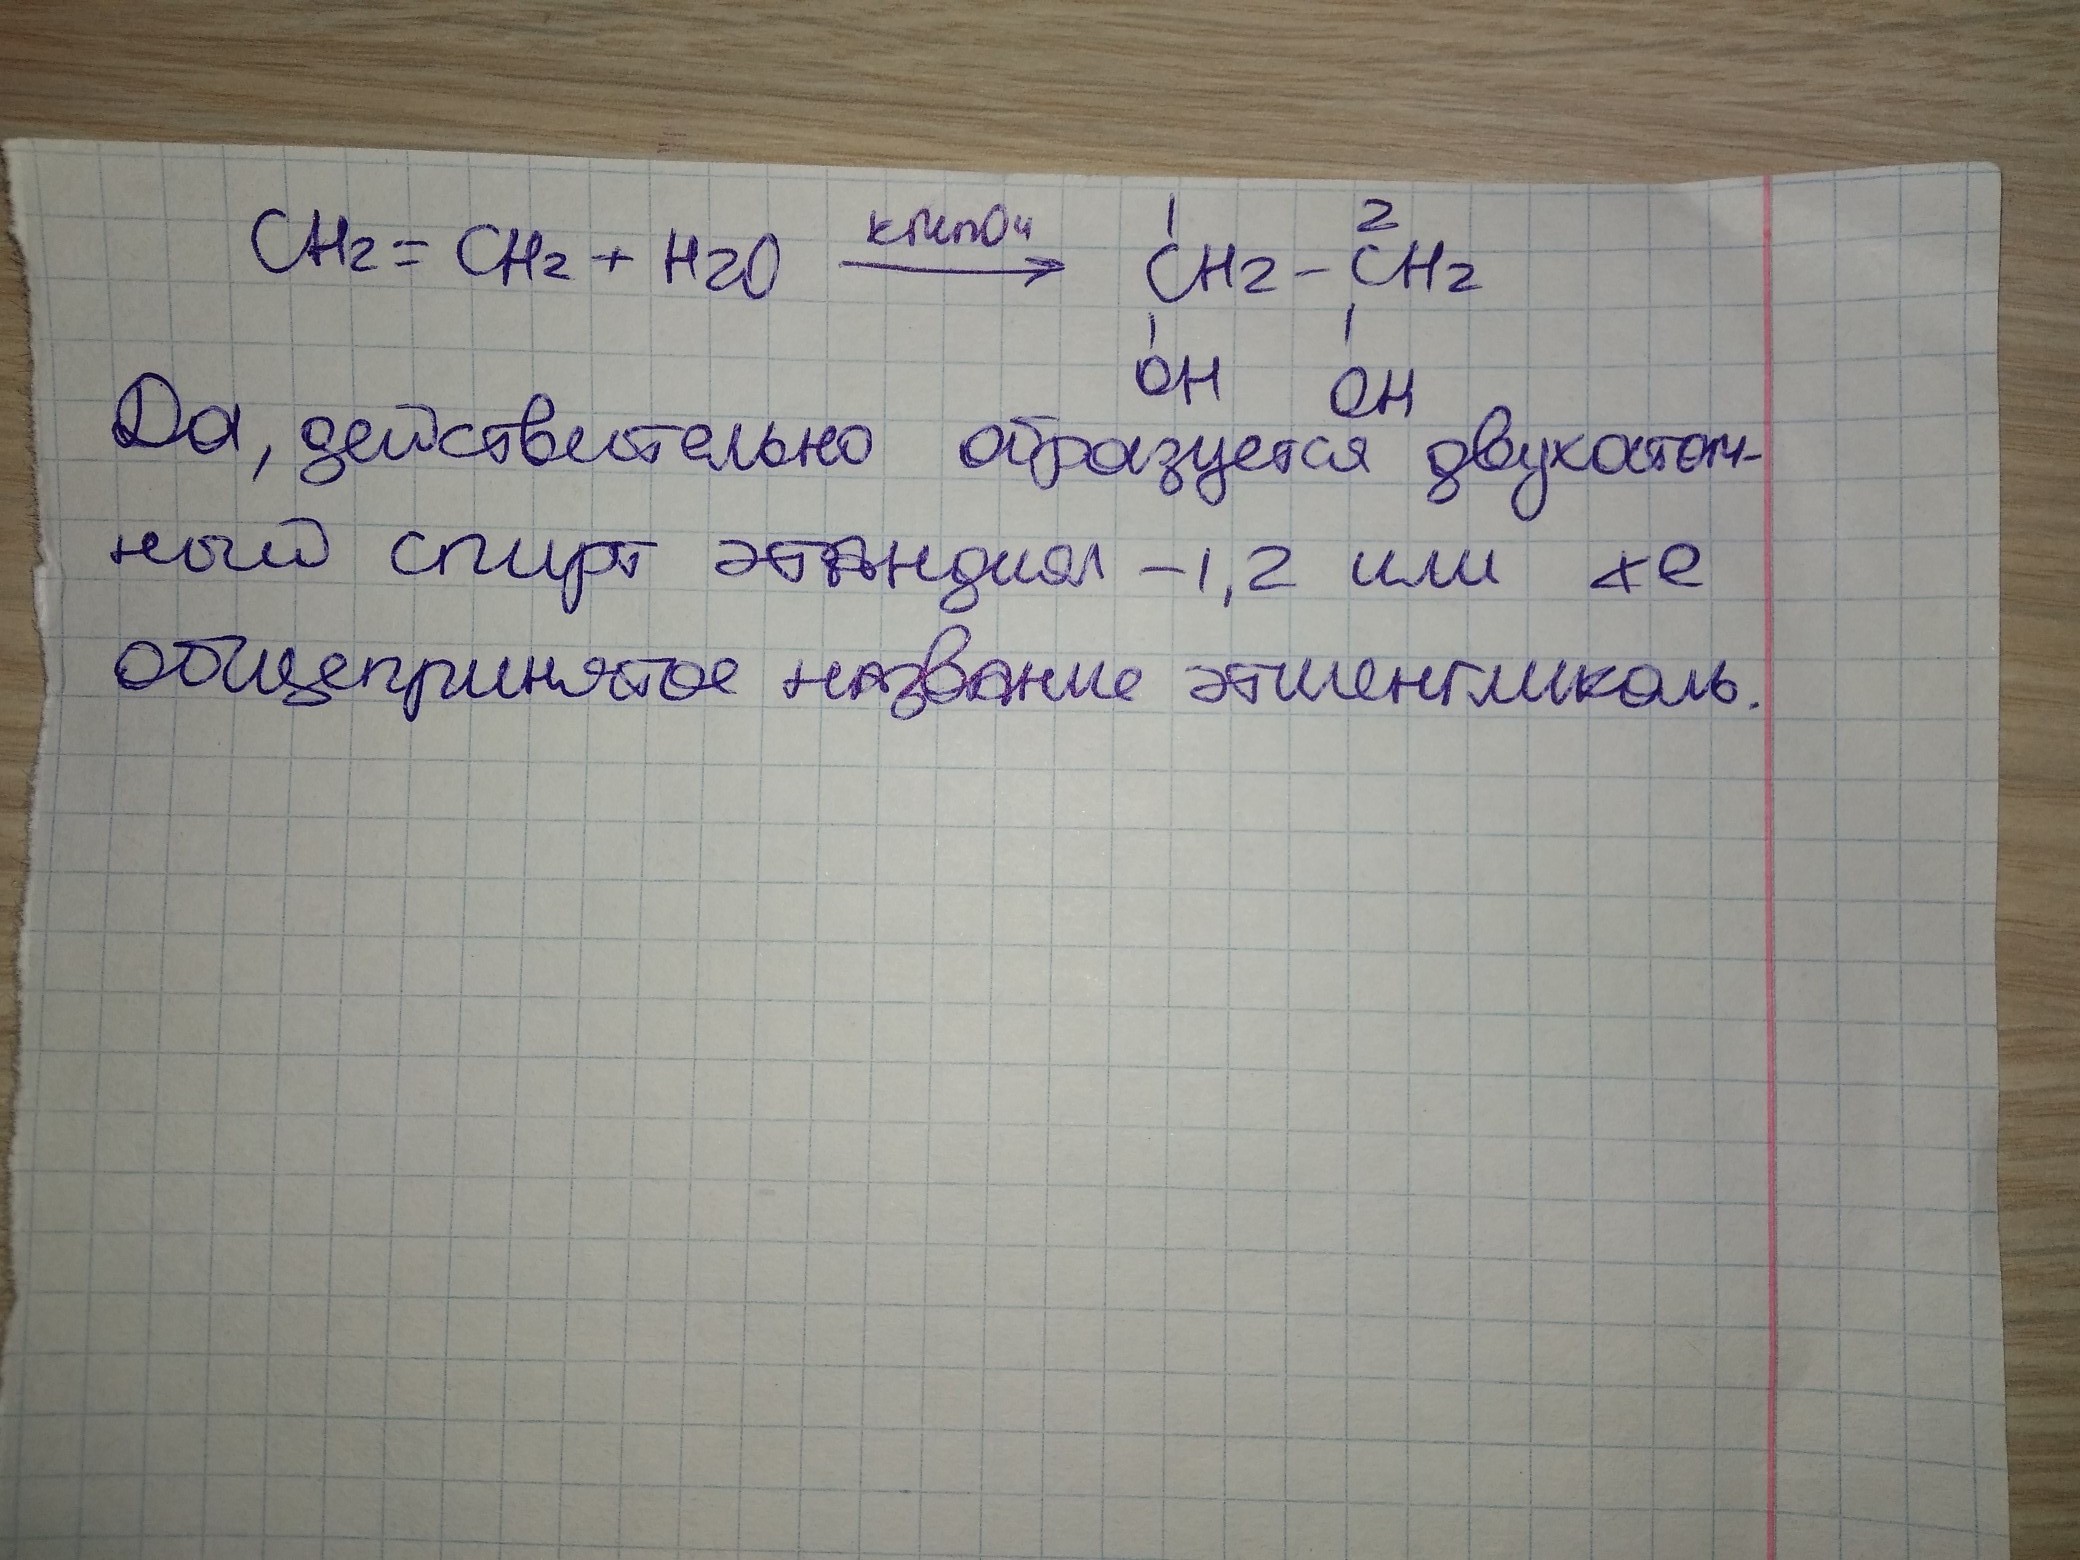 CH2 = CH2 + H2O KMnO4 → 1CH2 - 2CH2
OH OH
Да, действительно образуется двухатом-
ный спирт этандиол -1,2 или же
общепринятое название этиленгликоль.